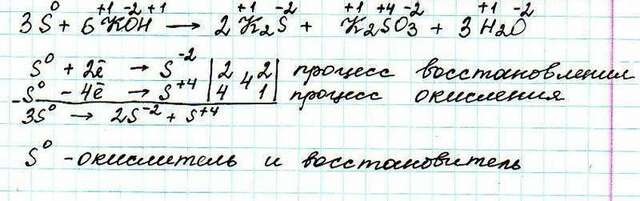 3S⁰ + 6K⁺¹O⁻²H⁺¹ → 2K₂⁺¹S⁻² + K₂⁺¹S⁺⁴O₃⁻² + 3H₂⁺¹O⁻²
S⁰ + 2ē → S⁻² | 2 | 4 | 2 | процесс восстановления
S⁰ - 4ē → S⁺⁴ | 4 | 4 | 1 | процесс окисления
3S⁰ → 2S⁻² + S⁺⁴
S⁰ - окислитель и восстановитель